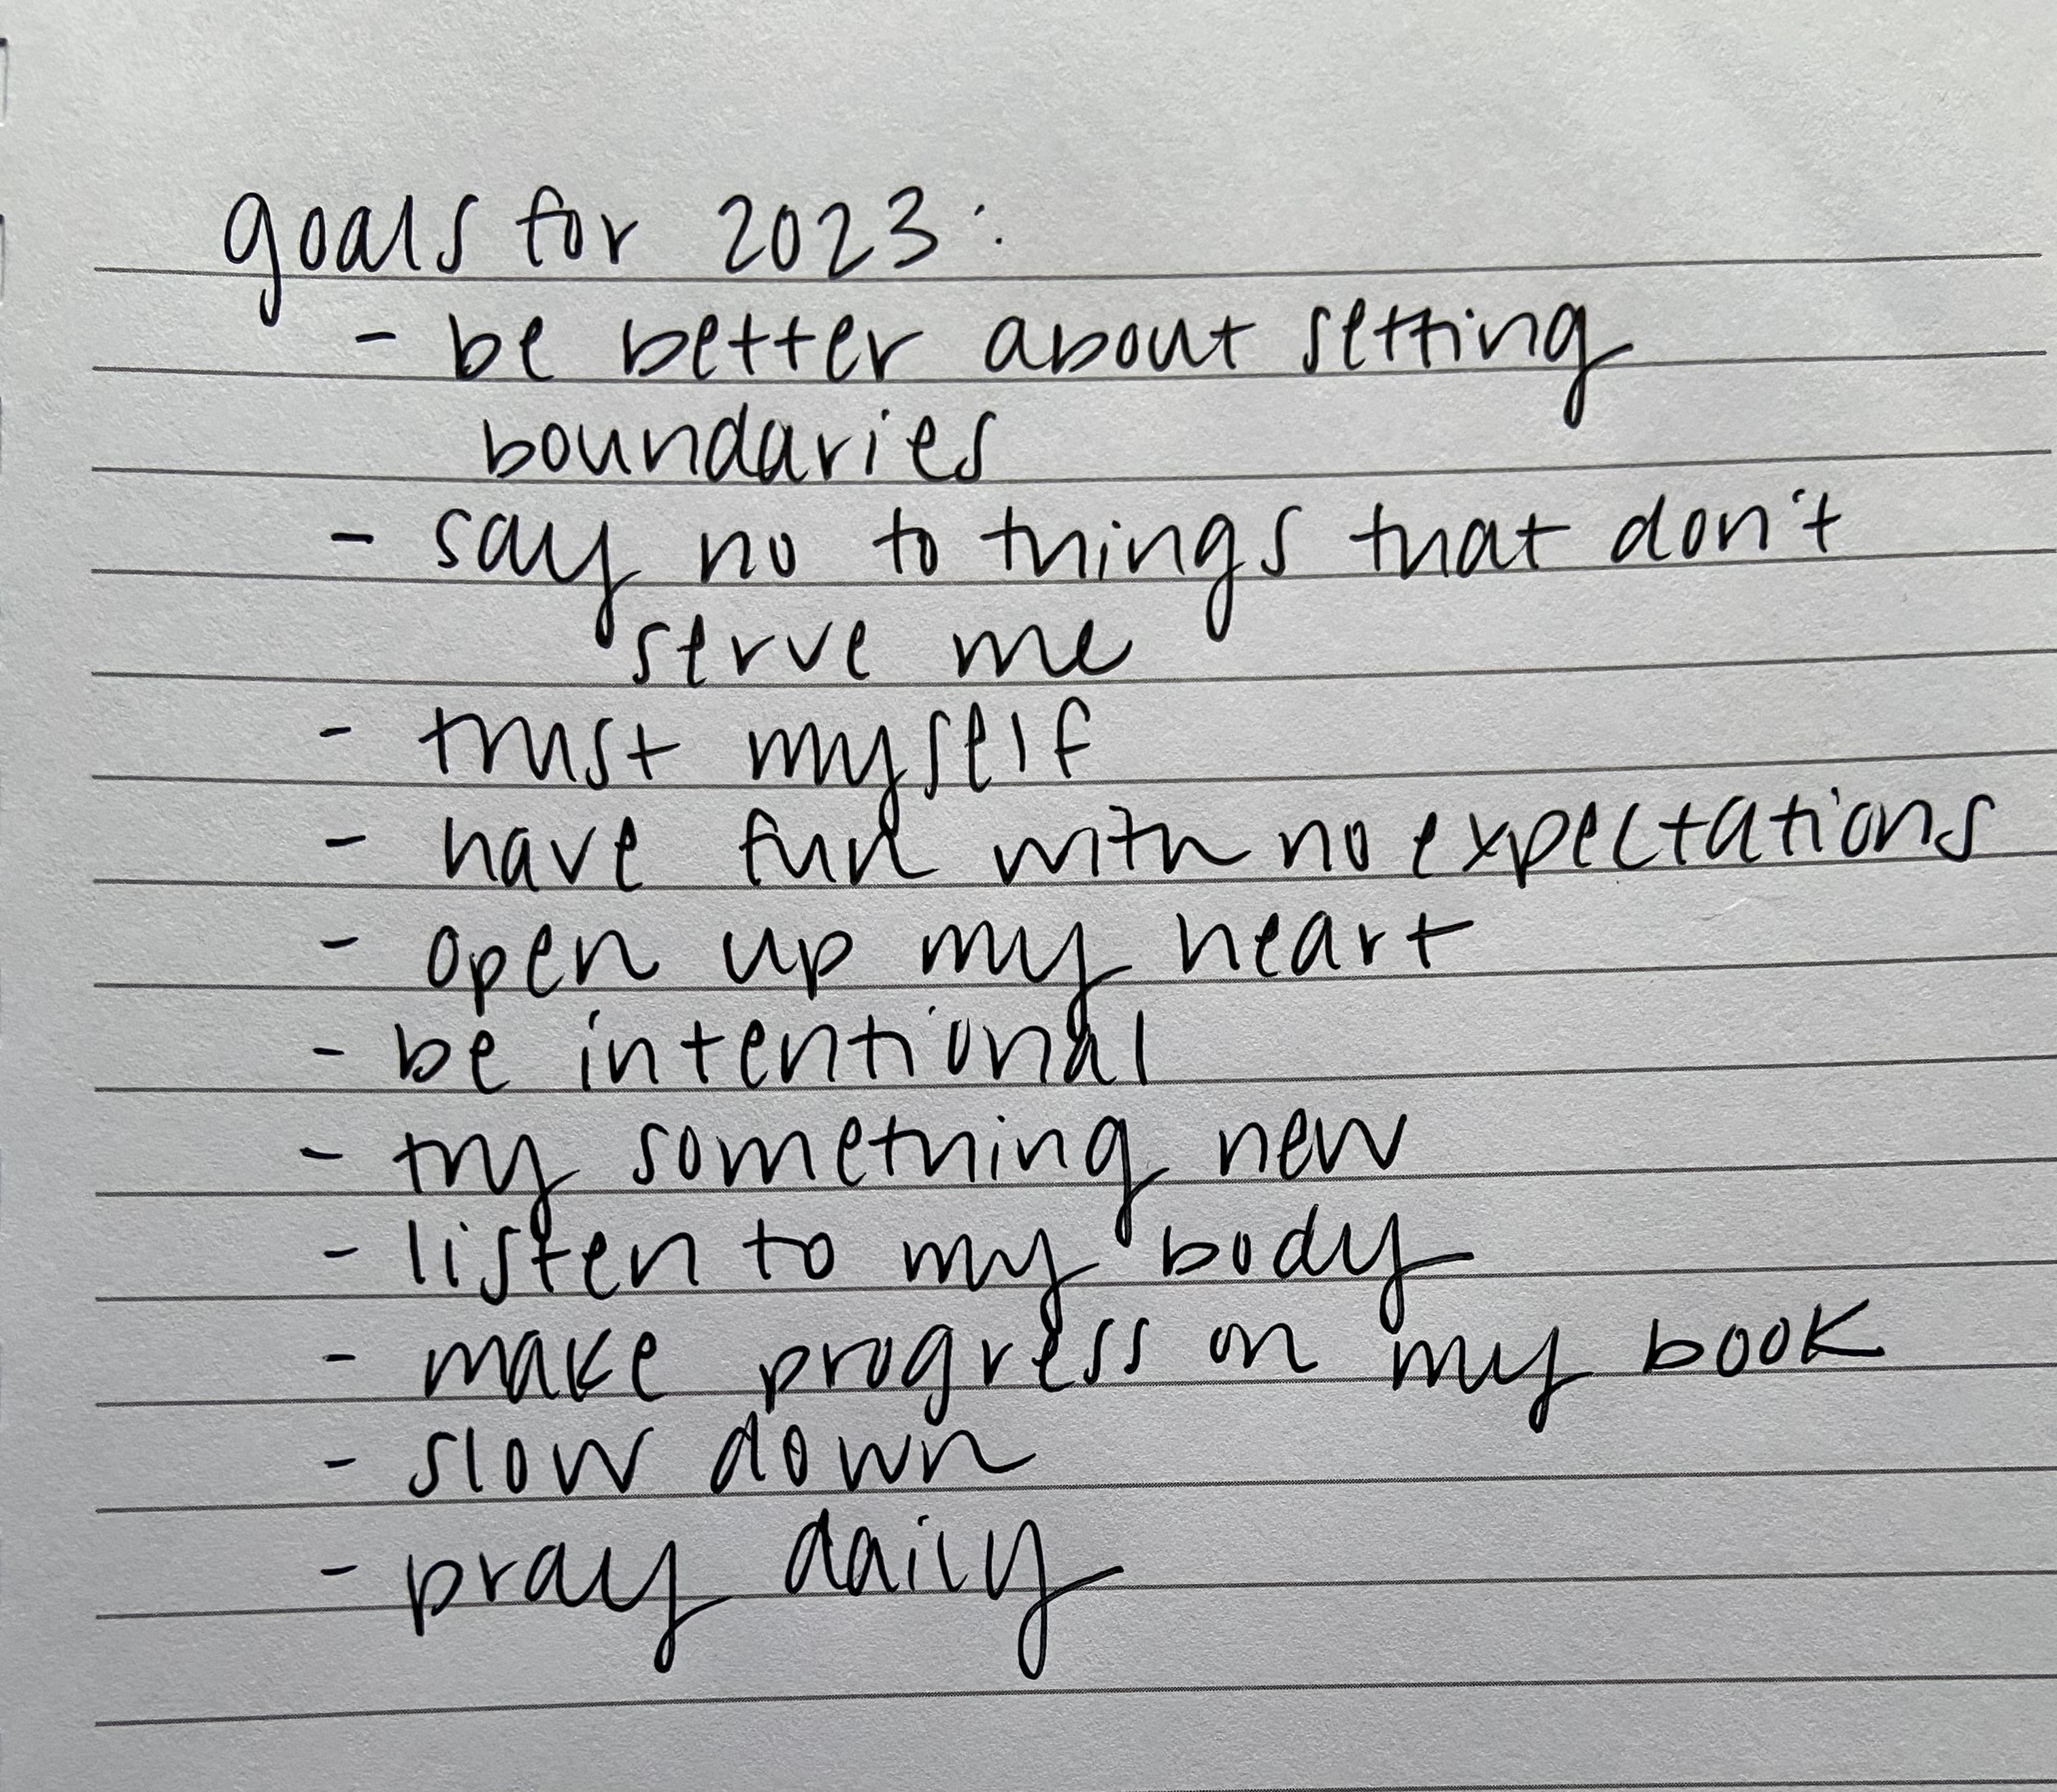 goals for 2023:
- be better about setting
boundaries
- say no to things that don't
serve me
- trust myself
- have fun with no expectations
- open up my heart
- be intentional
- try something new
- listen to my body
- make progress on my book
- slow down
- pray daily